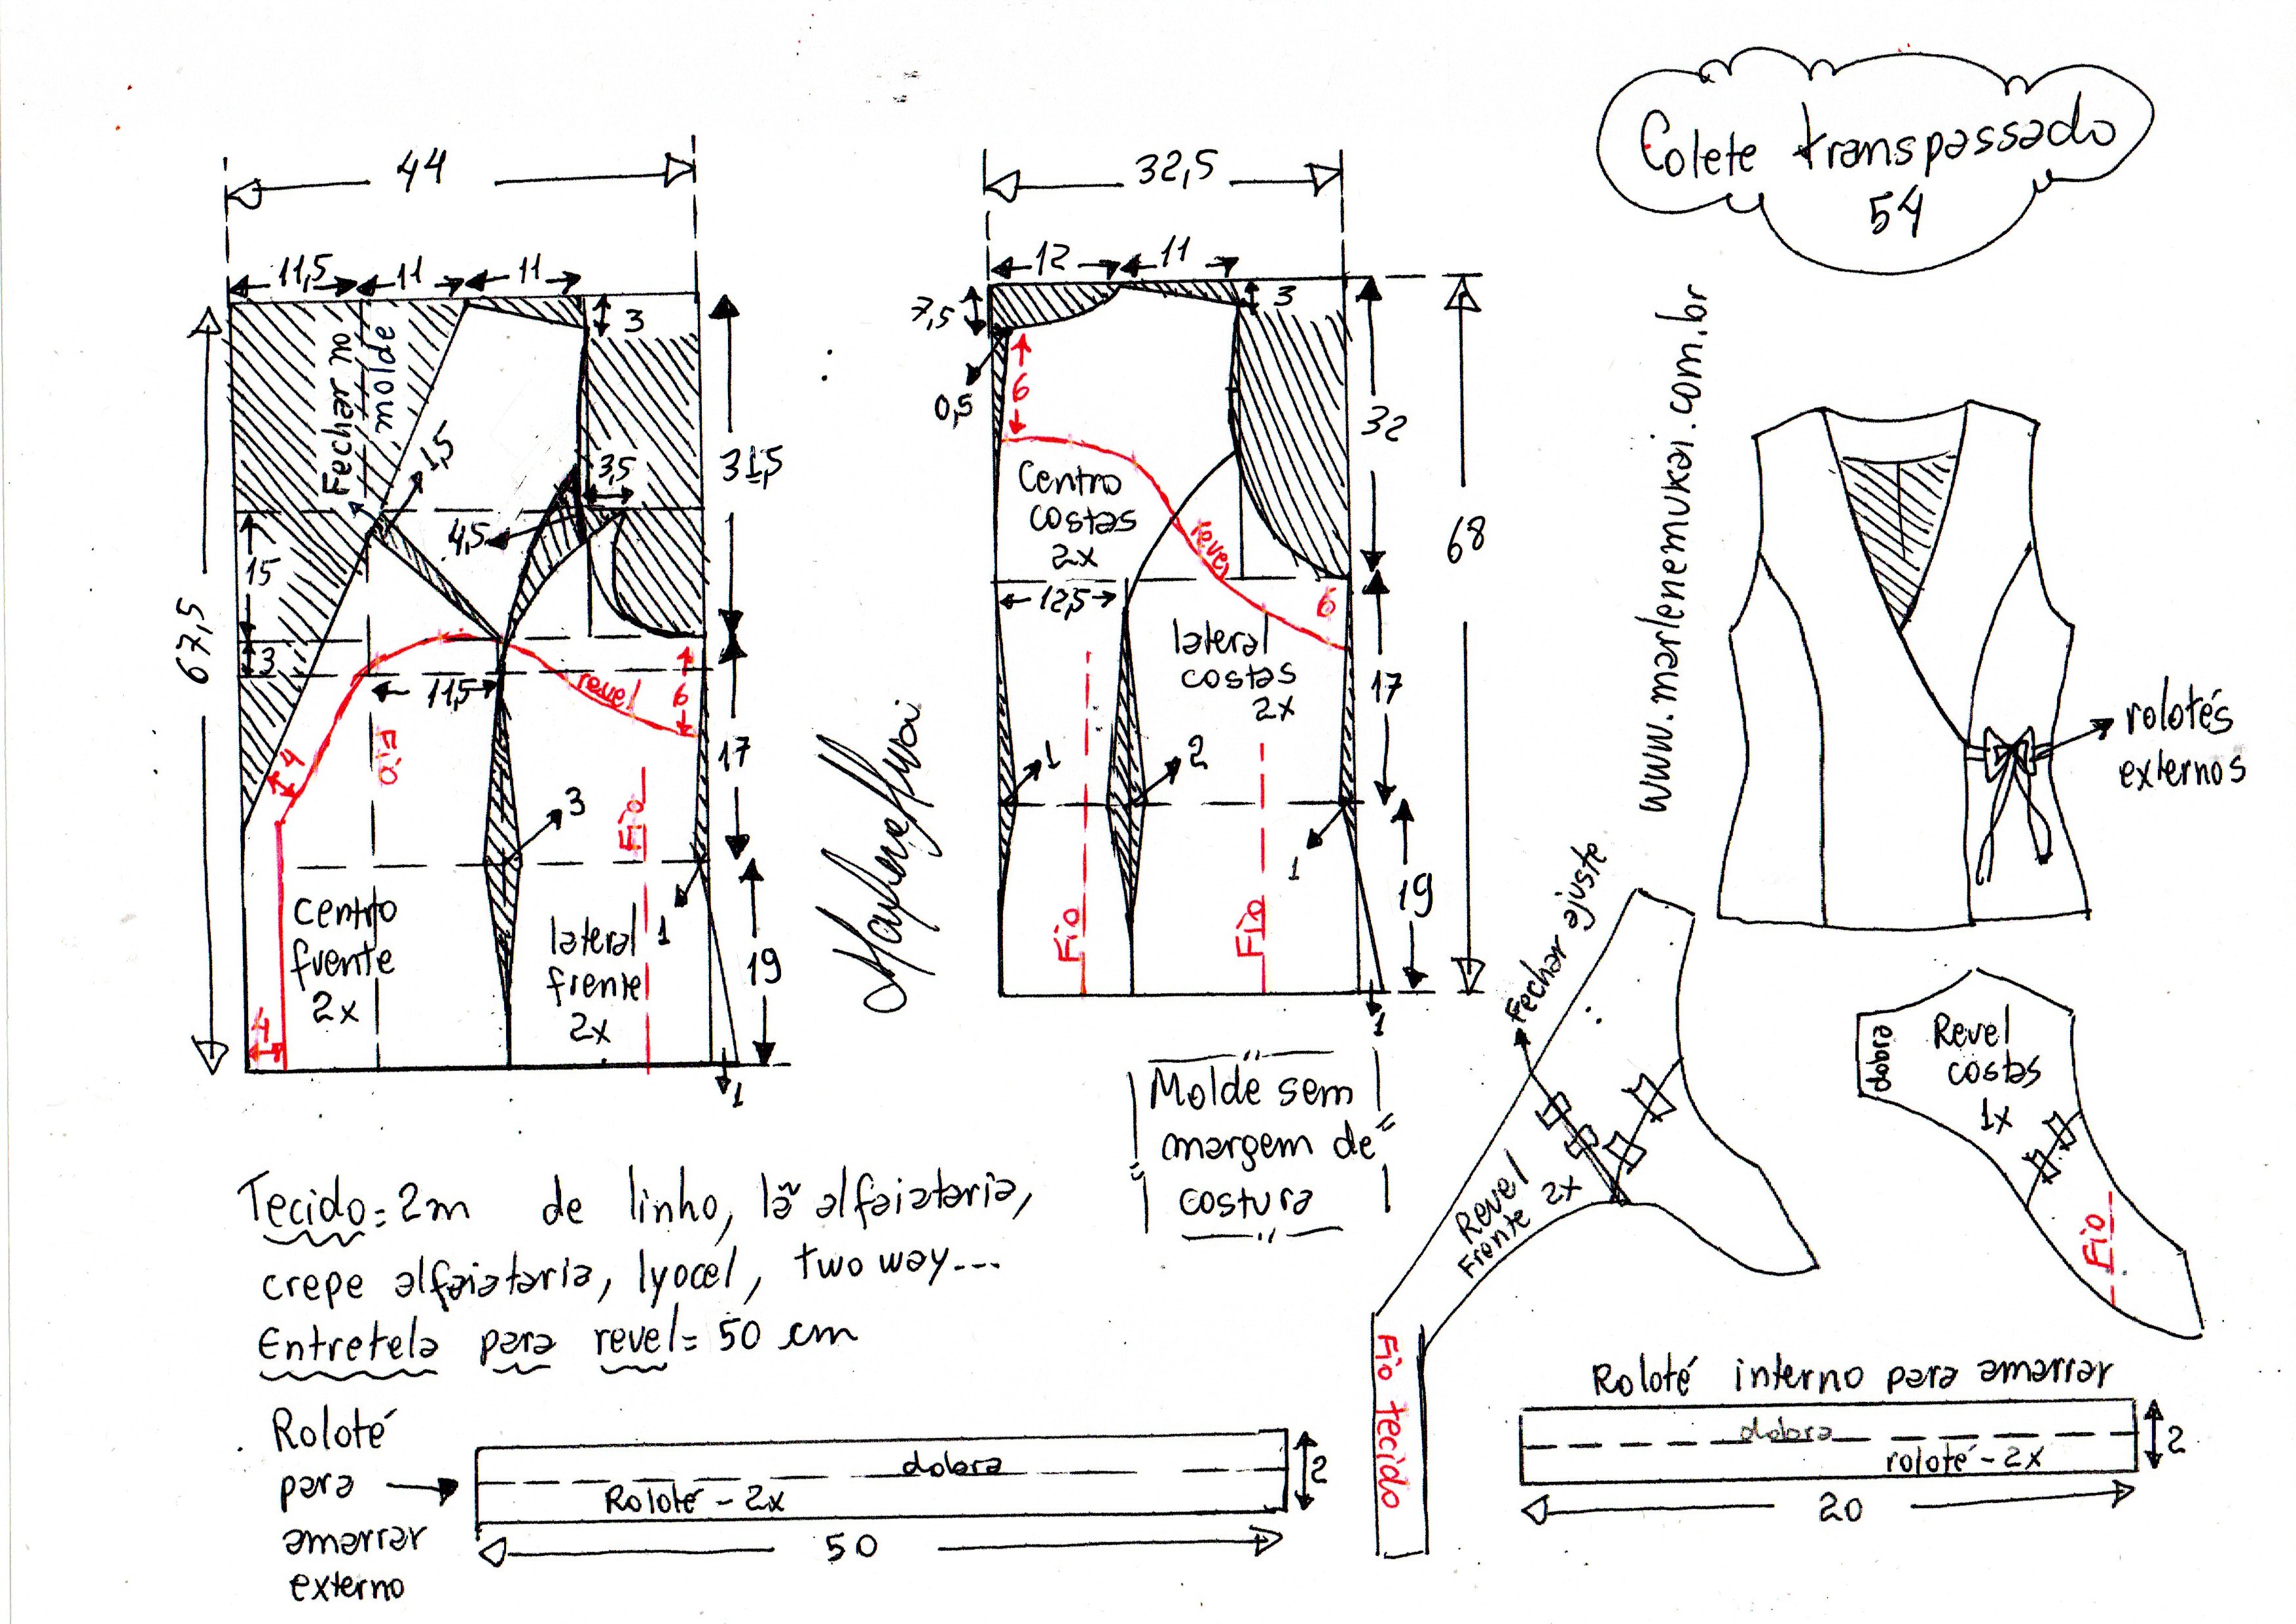 Colete transpassado
54
44
11,5
11
11
3
Fechar no
molde
1,5
3,5
4,5
31,5
15
3
67,5
11,5
revel
6
4
Fio
17
3
Fio
1
centro
frente
2x
lateral
frente
2x
19
4
1
32,5
12
11
7,5
3
0,5
6
32
68
Centro
costas
2x
revel
12,5
6
lateral
costas
2x
17
1
2
1
Fio
Fio
19
1
www.marlenemukai.com.br
rolotés
externos
Molde sem
margem de
costura
Fechar ajuste
Revel
Frente 2x
Fio tecido
dobra
Revel
costas
1x
Fio
Tecido = 2m de linho, lã alfaiataria,
crepe alfaiataria, lyocel, two way...
Entretela para revel = 50 cm
Roloté
para
amarrar
externo
dobra
Roloté - 2x
2
50
Roloté interno para amarrar
dobra
roloté - 2x
2
20